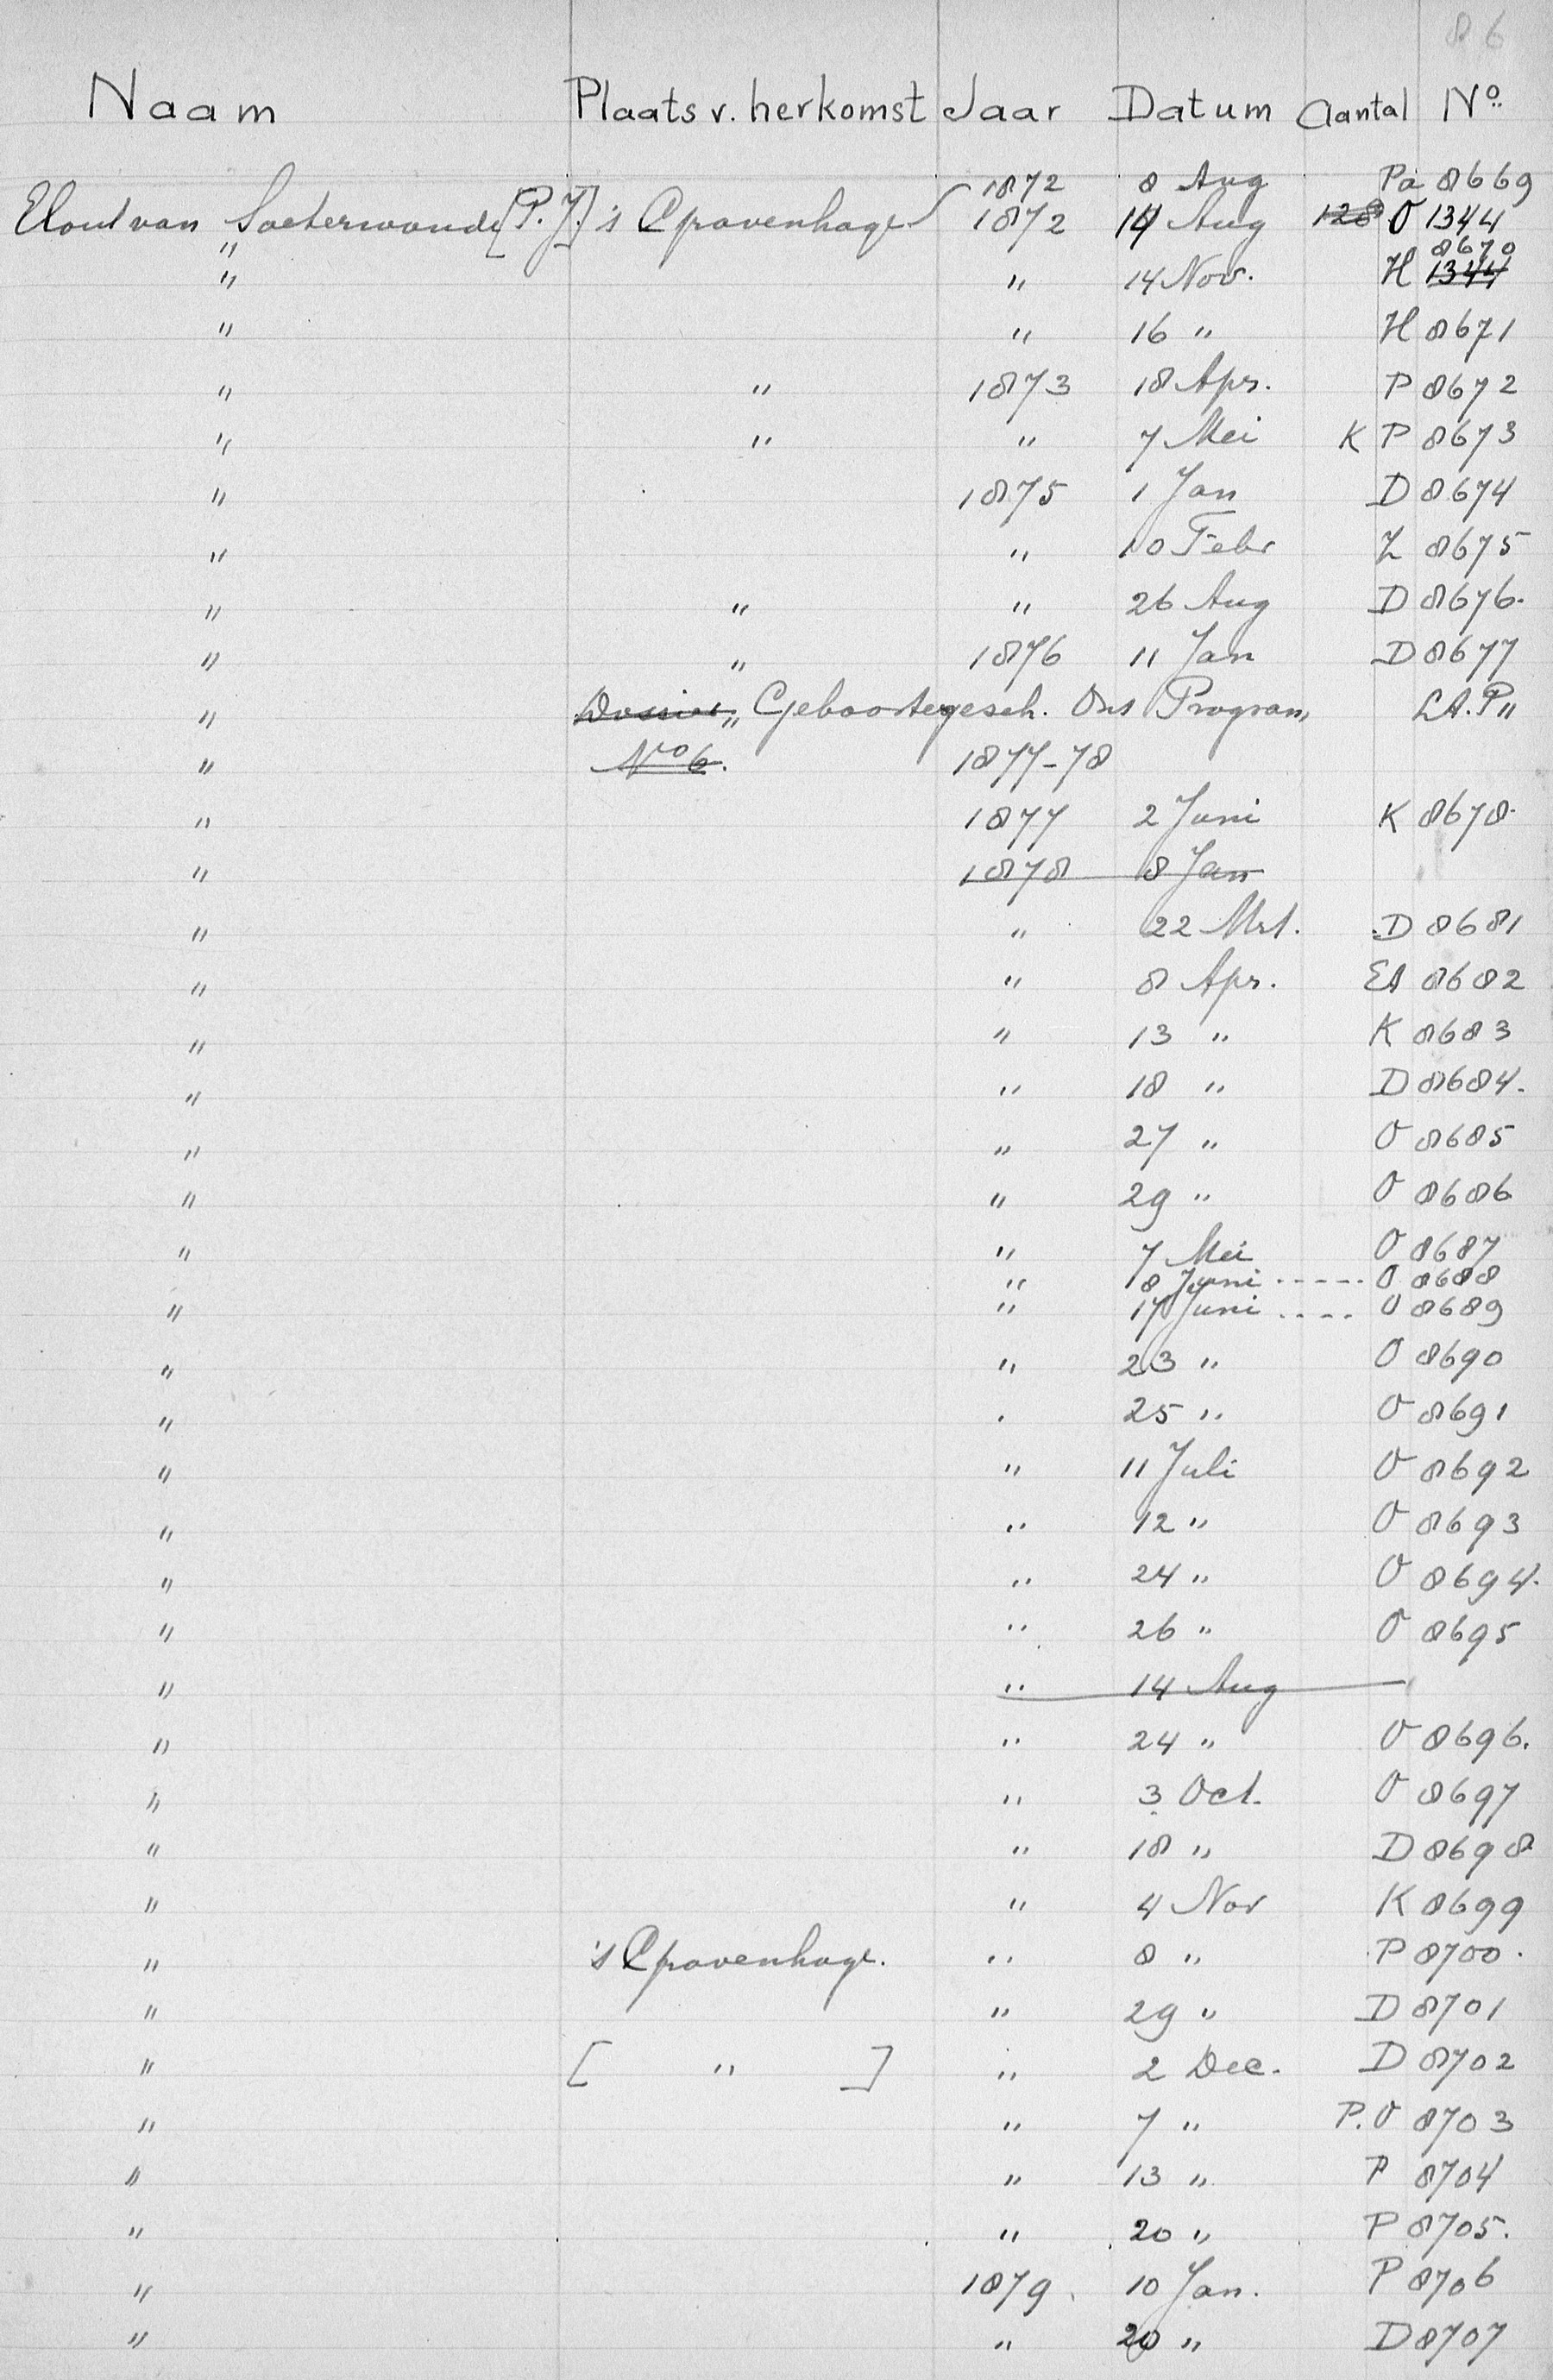 86
Naam Plaats v. herkomst Jaar Datum Aantal No
1872 8 Aug Pa 8669
Elout van Soeterwoude [P.J.] 's Gravenhage 1872 14 Aug 128 O 1344
" 8670
" " 14 Nov. H 1344
" " 16 " H 8671
" " 1873 18 Apr. P 8672
" " " 7 Mei K P 8673
" 1875 1 Jan D 8674
" " 10 Febr Z 8675
" " " 26 Aug D 8676.
" " 1876 11 Jan D 8677
" Dossier „Geboortegesch. Ons Program" LA.P"
" No 6. 1877-78
" 1877 2 Juni K 8678.
" 1878 8 Jan
" " 22 Mrt. D 8681
" " 8 Apr. EA 8682
" " 13 " K 8683
" " 18 " D 8684.
" " 27 " O 8685
" " 29 " O 8686
" " 7 Mei O 8687
" 8 Juni ----- O 8688
" " 17 Juni .... O 8689
" " 23 " O 8690
" . 25 " O 8691
" " 11 Juli O 8692
" " 12 " O 8693
" " 24 " O 8694.
" " 26 " O 8695
" " 14 Aug
" " 24 " O 8696.
" " 3 Oct. O 8697
" " 18 " D 8698
" " 4 Nov K 8699
" 's Gravenhage. " 8 " P 8700.
" " 29 " D 8701
" [ " ] " 2 Dec. D 8702
" " 7 " P.O 8703
" " 13 " P 8704
" " 20 " P 8705.
" 1879. 10 Jan. P 8706
" " 20 " D 8707